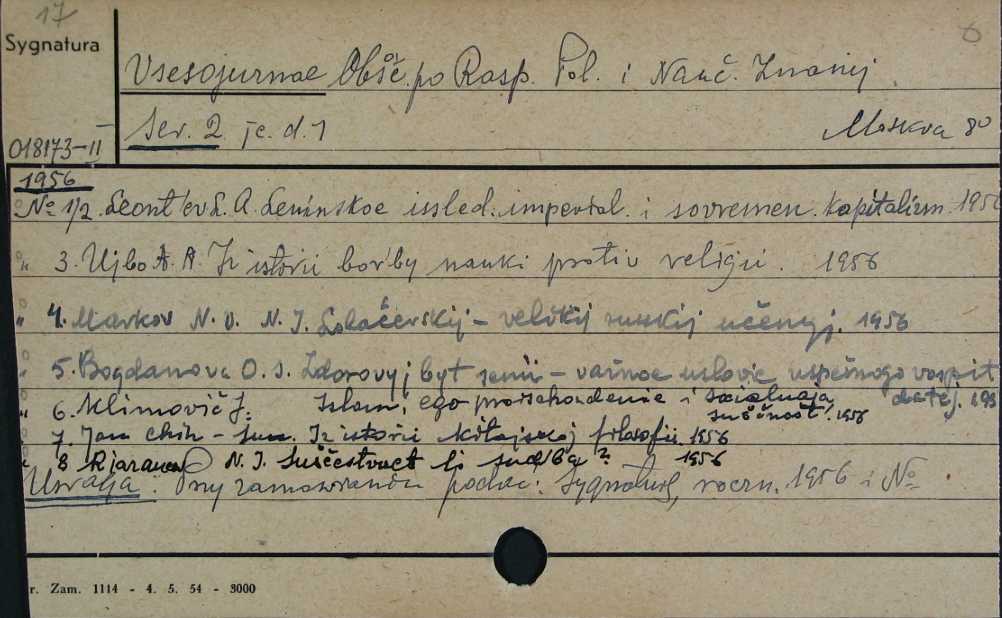 17
Sygnatura
6
Vsesojuznae Obšč. po Rasp. Pol. i Nauč. Znanij
Ser. 2 je. d. 1
Moskva 80
018173-II
1956
№ 1/2. Leont'ev L. A. Leninskoe issled. imperial. i sovremen. kapitalizm. 1956
" 3. Ujbo A. A. Iz istorii bor'by nauki protiv religii. 1956
" 4. Markov N. V. N. I. Lobačevskij - velikij russkij učenyj. 1956
" 5. Bogdanova O. S. Zdorovyj byt semii - važnoe uslovie uspešnogo vospit
datej. 195
" 6. Klimovič J. Islam, ego proischoždenie i socialnaja
suščnost'. 1956
" 7. Jan Chin - Iz istorii kitajskoj filosofii. 1956
" 8 N. I. Suščestvuet li sud'ba? 1956
Uwaga: Przy zamawianiu podać: Sygnaturę, roczn. 1956 i №
r. Zam. 1114 - 4. 5. 54 - 3000